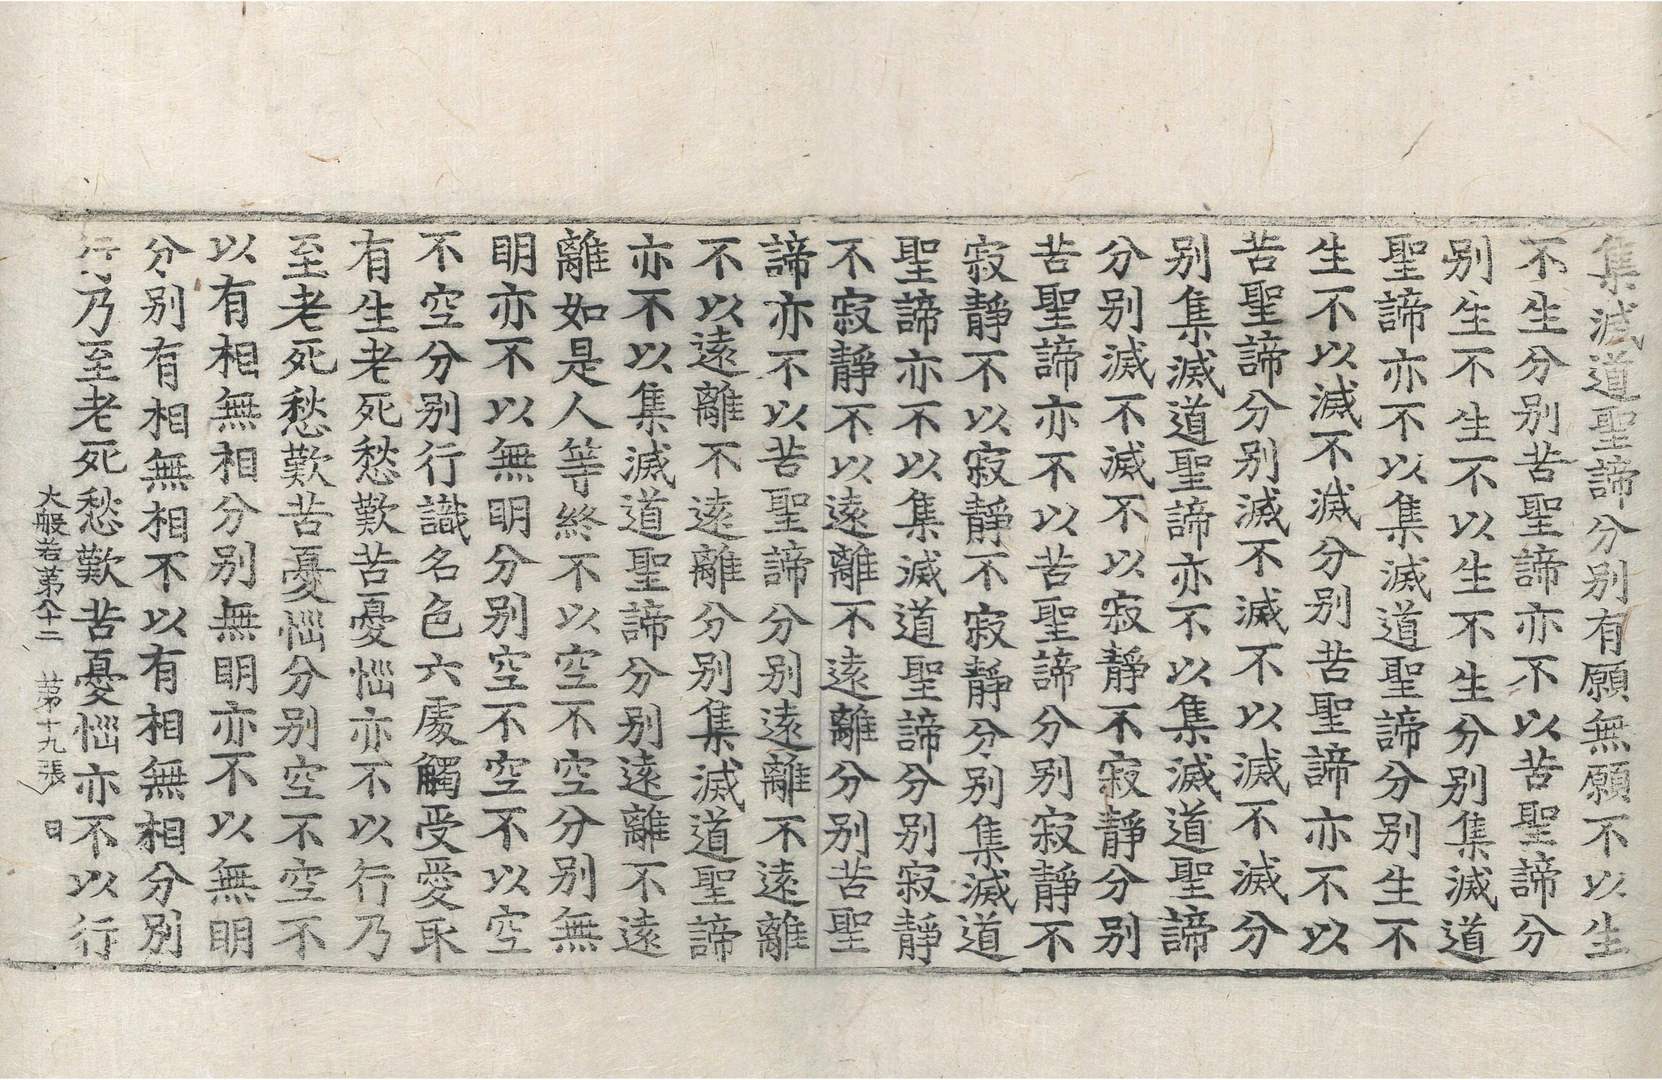 集滅道聖諦分別有願無願不以生
不生分別苦聖諦亦不以苦聖諦分
別生不生不以生不生分別集滅道
聖諦亦不以集滅道聖諦分別生不
生不以滅不滅分別苦聖諦亦不以
苦聖諦分別滅不滅不以滅不滅分
別集滅道聖諦亦不以集滅道聖諦
分別滅不滅不以寂靜不寂靜分別
苦聖諦亦不以苦聖諦分別寂靜不
寂靜不以寂靜不寂靜分別集滅道
聖諦亦不以集滅道聖諦分別寂靜
不寂靜不以遠離不遠離分別苦聖
諦亦不以苦聖諦分別遠離不遠離
不以遠離不遠離分別集滅道聖諦
亦不以集滅道聖諦分別遠離不遠
離如是人等終不以空不空分別無
明亦不以無明分別空不空不以空
不空分別行識名色六處觸受愛取
有生老死愁歎苦憂惱亦不以行乃
至老死愁歎苦憂惱分別空不空不
以有相無相分別無明亦不以無明
分別有相無相不以有相無相分別
行乃至老死愁歎苦憂惱亦不以行
大般若第八十二 第十九張 日